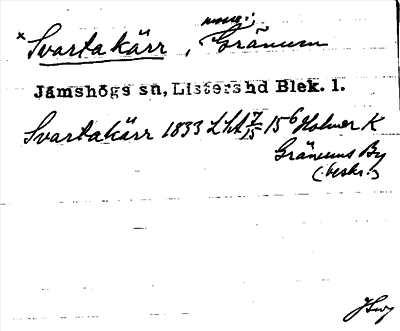 × Svartakärr, Gränum
Jämshögs sn, Listers hd Blek. l.
Svartakärr 1833 LSA 7/15 15⁶ Holmer K
Gränums By
(beskr.)